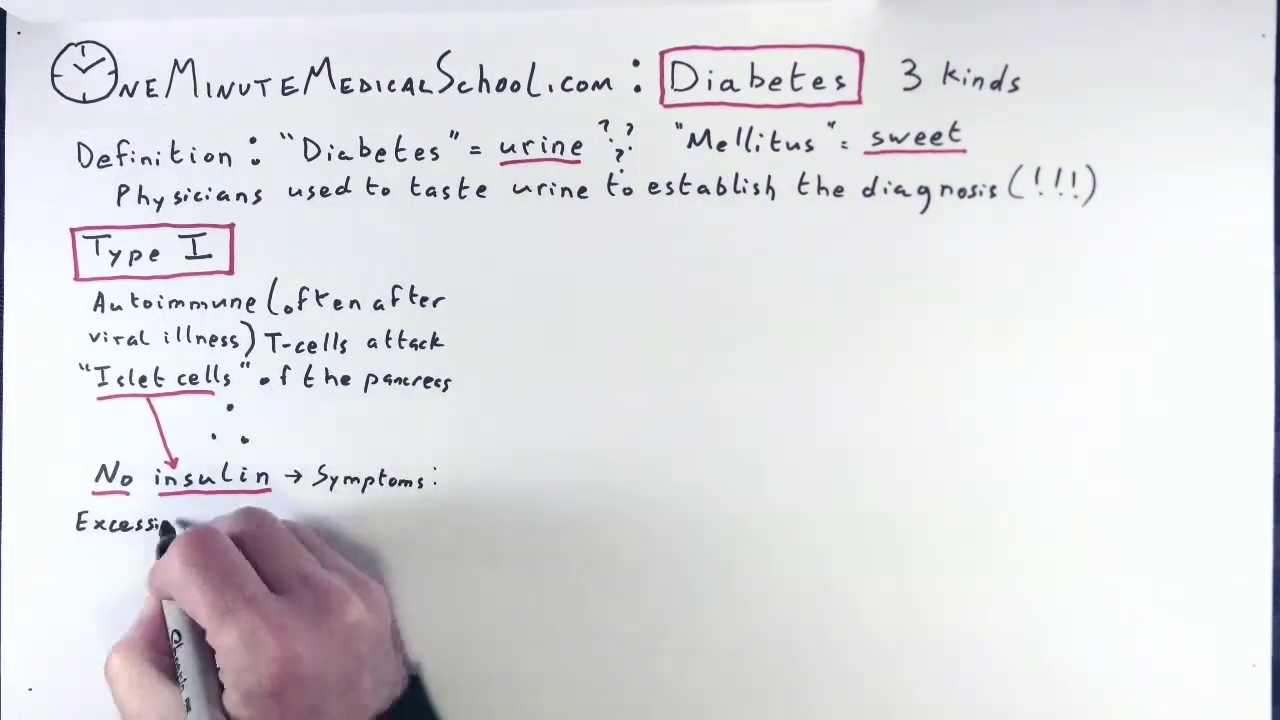 OneMinuteMedicalSchool.com : Diabetes 3 kinds
Definition : "Diabetes" = urine ??? "Mellitus" = sweet
Physicians used to taste urine to establish the diagnosis (!!!)
Type I
Autoimmune (often after
viral illness) T-cells attack
"Islet cells" of the pancreas
No insulin → Symptoms:
Excessi